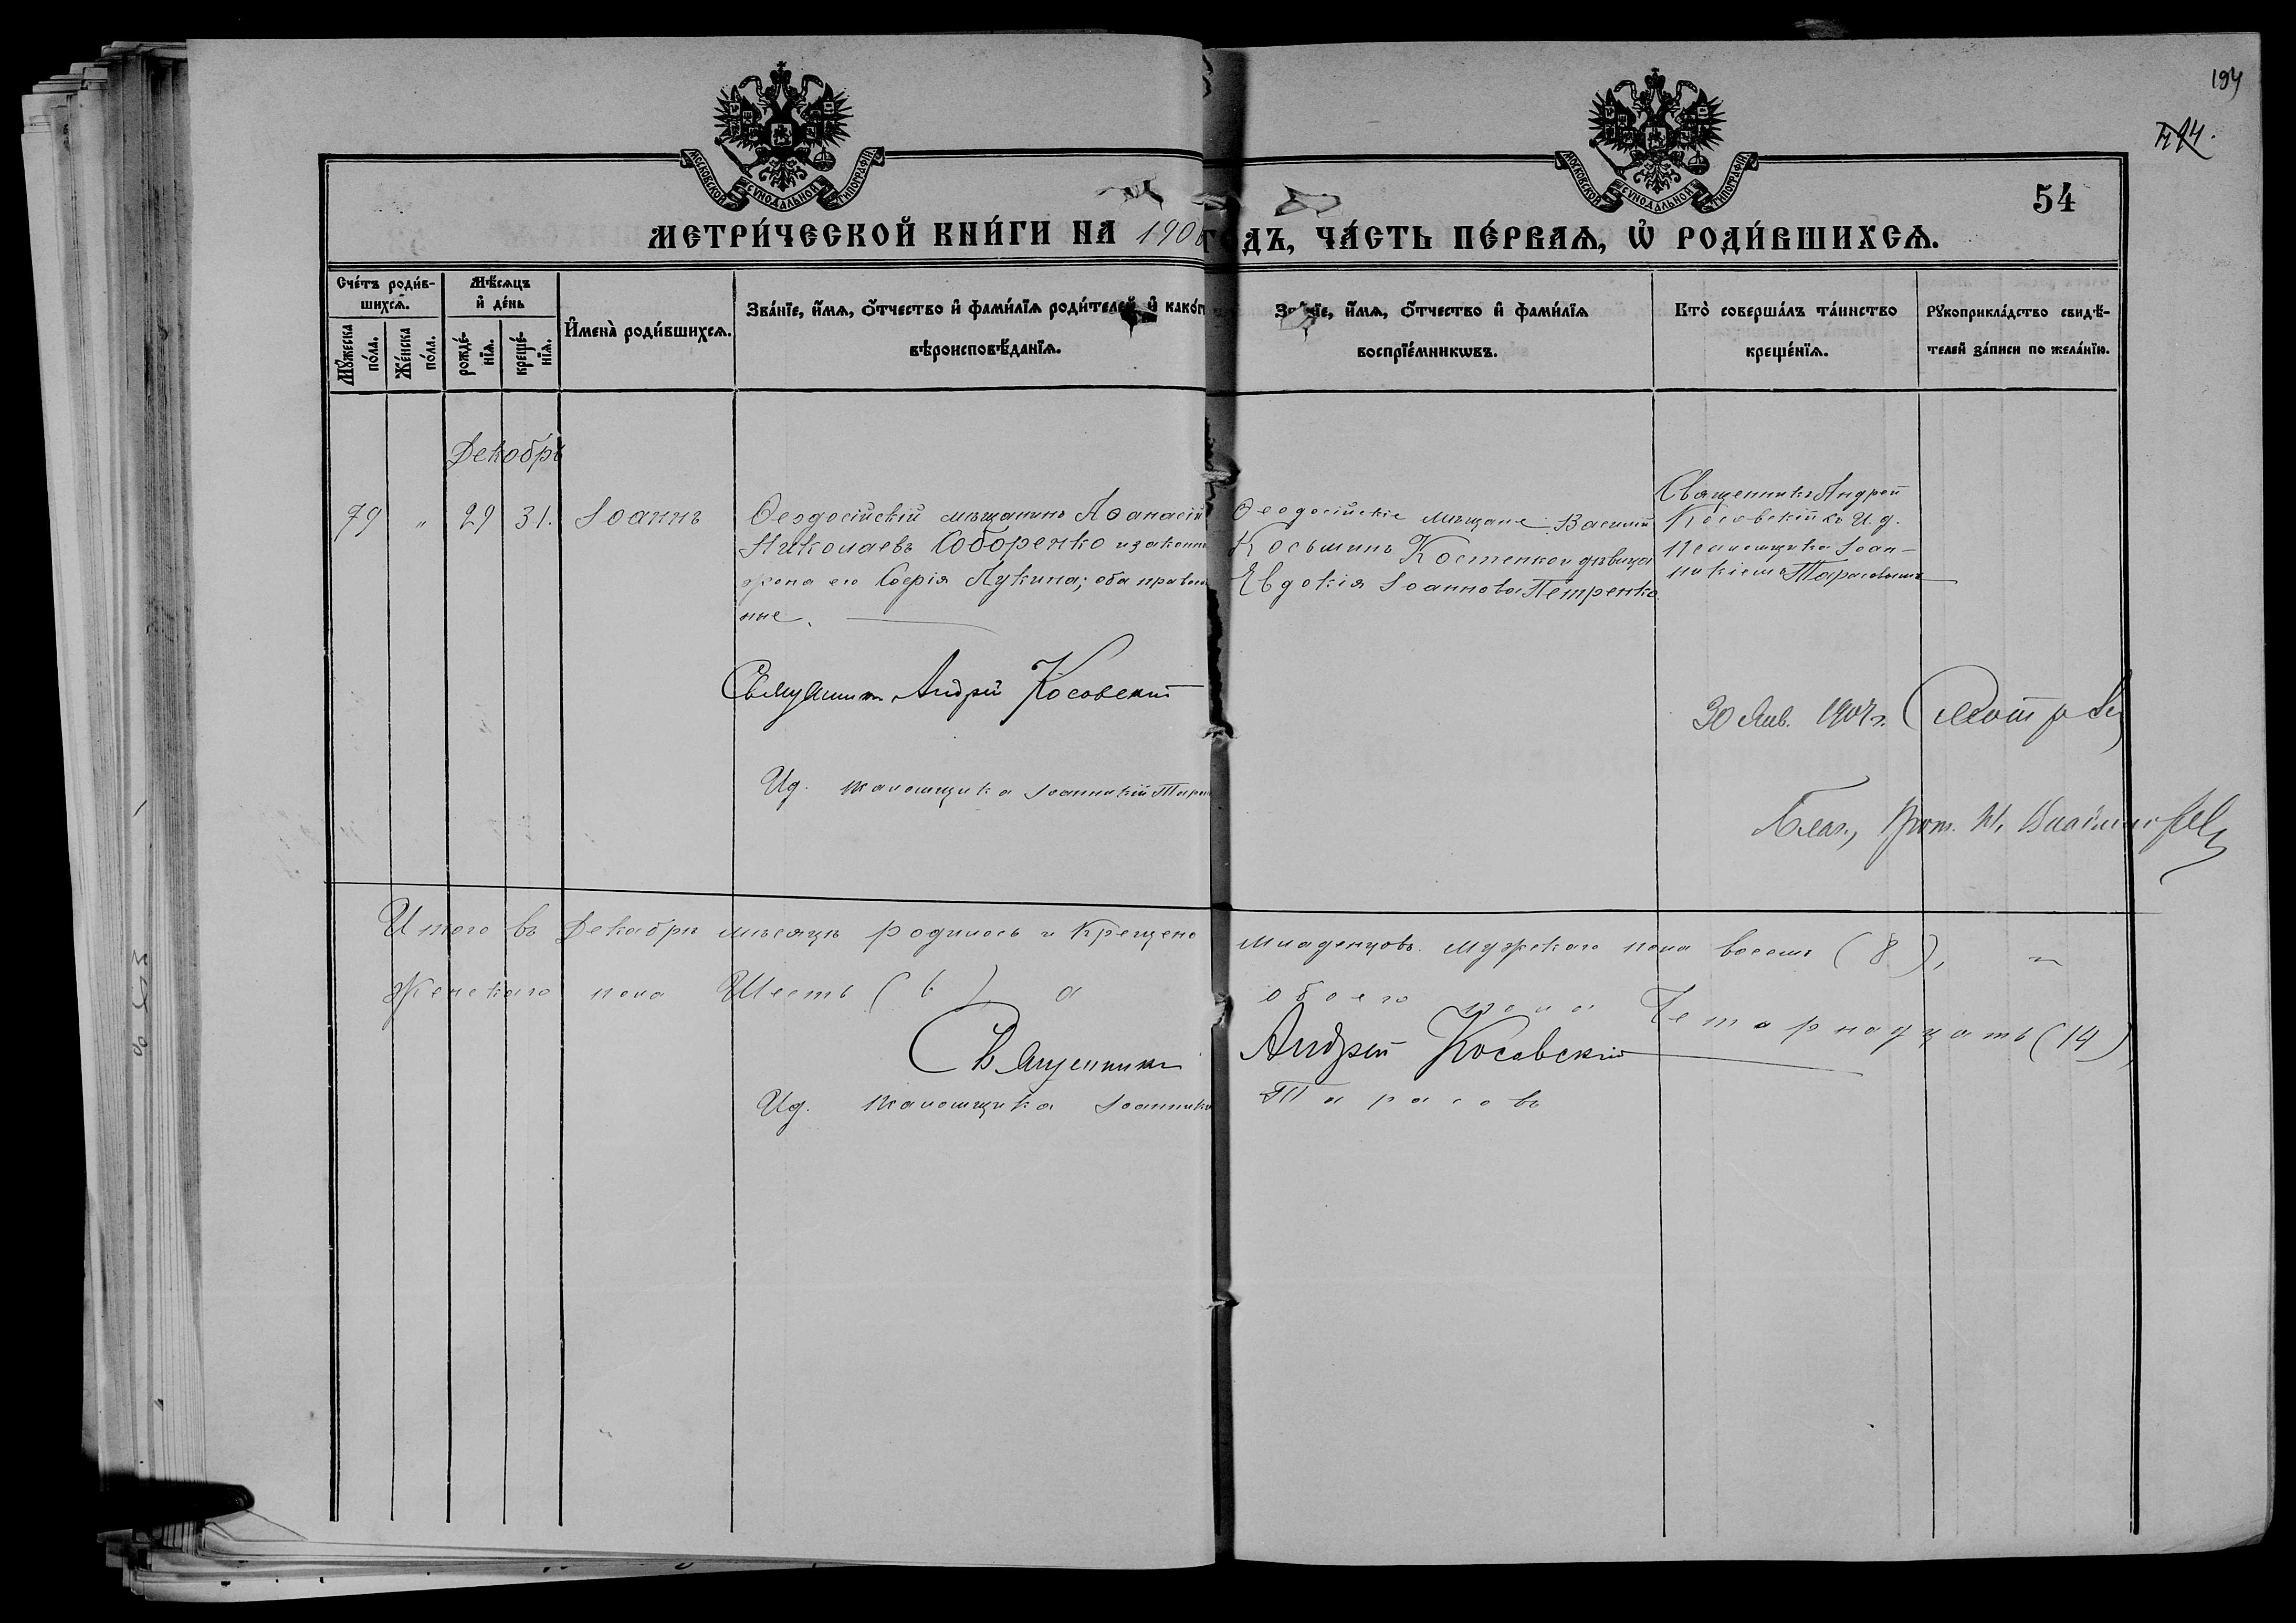 194
МОСКОВСКОЙ СѴНОДАЛЬНОЙ ТИПОГРАФІИ
МОСКОВСКОЙ СѴНОДАЛЬНОЙ ТИПОГРАФІИ
54
МЕТРИ́ЧЕСКОЙ КНИ́ГИ НА 1906 ГОДЪ, ЧА́СТЬ ПЕ́РВАѦ, Ѡ҆ РОДИ́ВШИХСѦ.
Сче́тъ роди́в-
шихсѧ.
Мѣ́сѧцъ
и҆ де́нь
Мꙋ́жеска
по́ла.
Же́нска
по́ла.
рожде́-
нїѧ.
креще́-
нїѧ.
И҆мена̀ роди́вшихсѧ.
Зва́нїе, и҆́мѧ, ѻ҆́тчество и҆ фами́лїѧ роди́телей, и҆ како́гѡ
вѣроисповѣ́данїѧ.
Зва́нїе, и҆́мѧ, ѻ҆́тчество и҆ фами́лїѧ
воспрїе́мникѡвъ.
Кто̀ соверша́лъ та́инство
креще́нїѧ.
Рꙋкоприкла́дство свидѣ́-
телей за́писи по жела́нїю.
Декабрь
79 " 29 31. Іоаннъ
Ѳеодосійскій мѣщанинъ Аѳанасій
Николаевъ Соборенко и законн
жена его Софія Лукина; оба правос
ные.
Ѳеодосійскіе мѣщане: Василій
Косьминъ Костенко и дѣвица
Евдокія Іоаннова Петренко.
Священникъ Андрей
Косовскій съ И. д.
псаломщика Іоан-
никіемъ Тарасовымъ
Священникъ Андрей Косовскій
30 Янв. 1907 г. Смотрѣлъ
И.д. псаломщика Іоанникій Тарас
Благ., Прот. И.
Итого въ Декабрѣ мѣсяцѣ родилось и крещено младенцовъ мужскаго пола восемь (8), и
Женскаго пола Шесть (6) а обоего пола Четырнадцать (14)
Священникъ Андрей Косовскій
И.д. псаломщика Іоанникій Тарасовъ